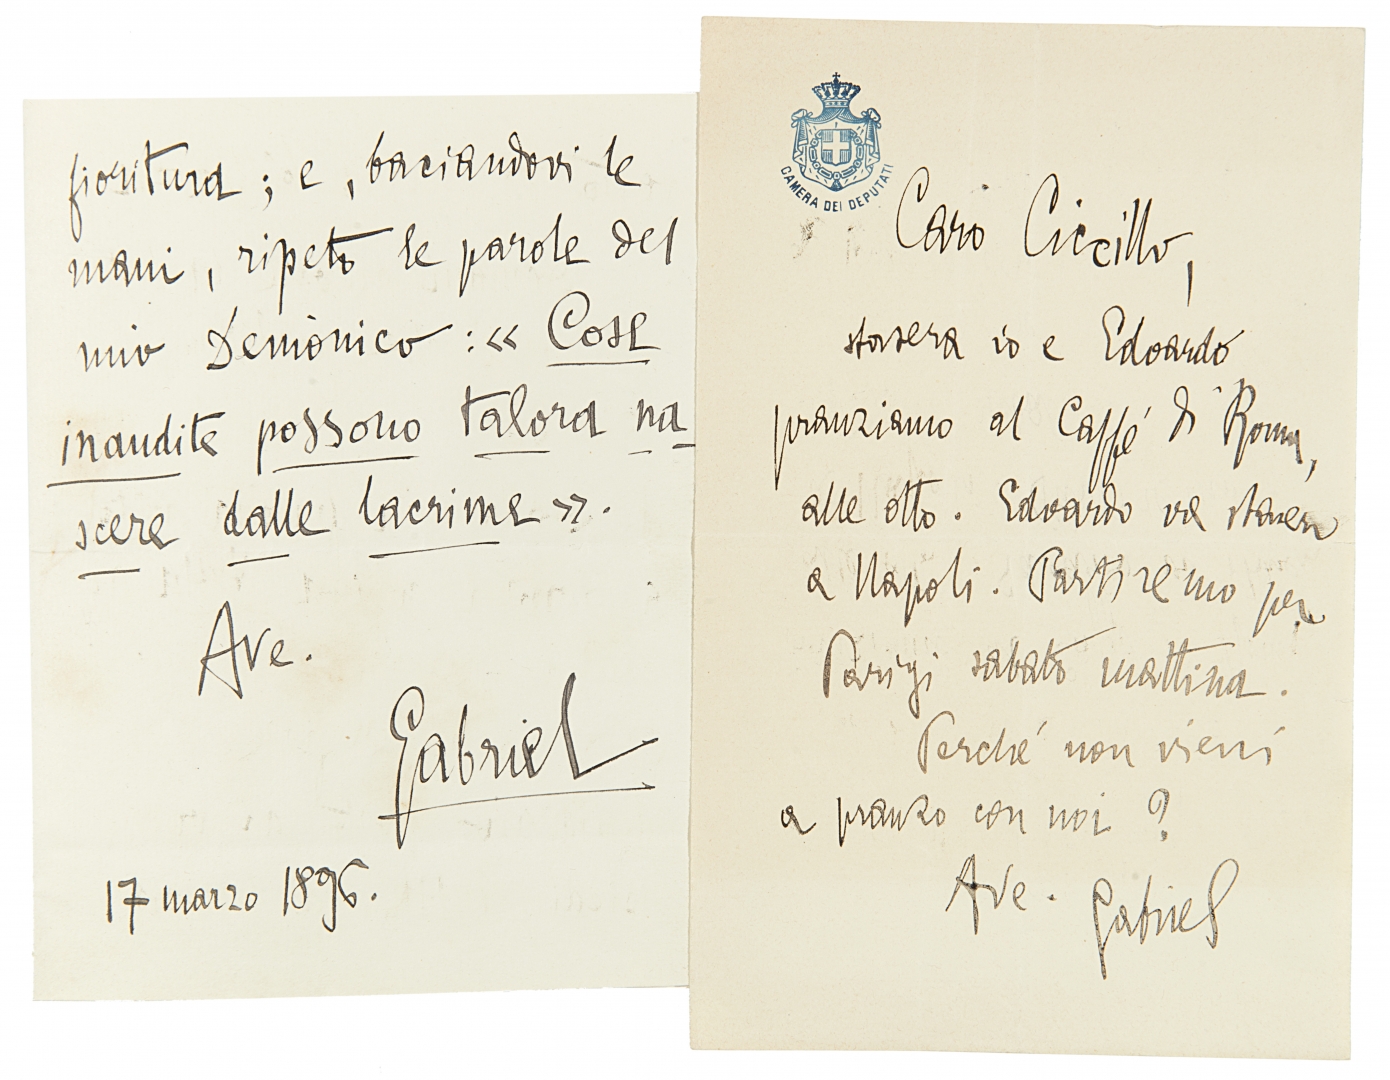 fioritura; e, baciandovi le
mani, ripeto le parole del
mio Demònico: « Cose
inaudite possono talora na
scere dalle lacrime ».
Ave.
Gabriel
17 marzo 1896.
CAMERA DEI DEPUTATI
Caro Ciccillo,
stasera io e Edoardo
pranziamo al Caffé di Roma,
alle otto. Edoardo va stasera
a Napoli. Partiremo per
Parigi sabato mattina.
Perché non vieni
a pranzo con noi?
Ave. Gabriel